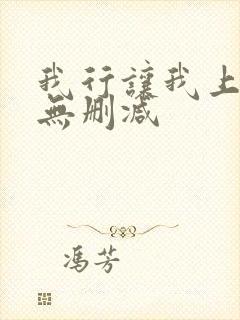 我行讓我上
無刪減
馮芳